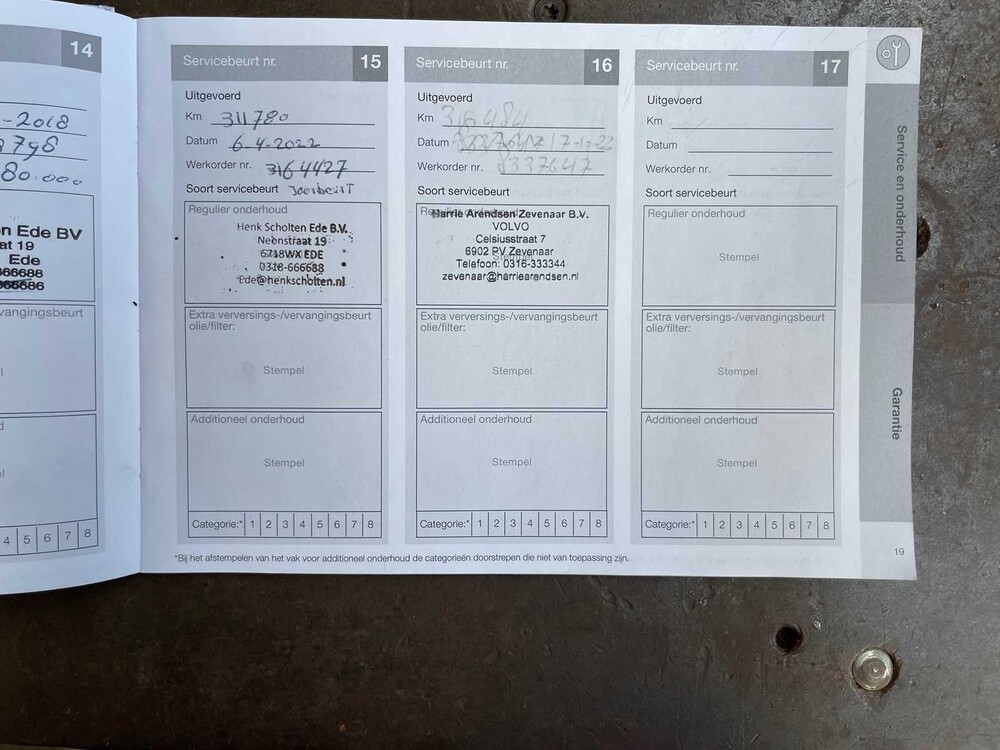 14
-2018
80.000
n Ede BV
at 19
Ede
666688
666686
vangingsbeurt
4 5 6 7 8
Servicebeurt nr. 15
Uitgevoerd
Km 311780
Datum 6-4-2022
Werkorder nr. 3164427
Soort servicebeurt Jaarbeurt
Regulier onderhoud
Henk Scholten Ede B.V.
Neonstraat 19
6718WX EDE
0316-666688
Ede@henkscholten.nl
Extra verversings-/vervangingsbeurt
olie/filter:
Stempel
Additioneel onderhoud
Stempel
Categorie:* 1 2 3 4 5 6 7 8
Servicebeurt nr. 16
Uitgevoerd
Km 316484
Datum 17-11-22
Werkorder nr. 8337647
Soort servicebeurt
Harrie Arendsen Zevenaar B.V.
VOLVO
Celsiusstraat 7
6902 PV Zevenaar
Telefoon: 0316-333344
zevenaar@harriearendsen.nl
Extra verversings-/vervangingsbeurt
olie/filter:
Stempel
Additioneel onderhoud
Stempel
Categorie:* 1 2 3 4 5 6 7 8
Servicebeurt nr. 17
Uitgevoerd
Km
Datum
Werkorder nr.
Soort servicebeurt
Regulier onderhoud
Stempel
Extra verversings-/vervangingsbeurt
olie/filter:
Stempel
Additioneel onderhoud
Stempel
Categorie:* 1 2 3 4 5 6 7 8
*Bij het afstempelen van het vak voor additioneel onderhoud de categorieën doorstrepen die niet van toepassing zijn.
Service en onderhoud
Garantie
19